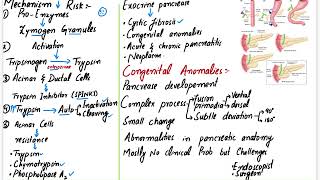 Mechanism ↓ Risk:-
① Pro-Enzymes
Zymogen Granules
② Activation
Trypsinogen → Trypsin
③ Acinar & Ductal Cells
Trypsin Inhibitor (SPINK1)
④ Trypsin → Auto Inactivation
Cleaving
⑤ Acinar Cells
resistance
• Trypsin
• Chymotrypsin
• Phospholipase A₂
Exocrine pancreas
• Cystic fibrosis
• Congenital anomalies
• Acute & chronic pancreatitis
• Neoplasms
Congenital Anomalies:-
Pancreas developement
Complex process Fusion Ventral
primordia dorsal
Small change Subtle deviation
Abnormalities in pancreatic anatomy
Mostly No Clinical Prob but Challenge
Endoscopist
• Surgeon